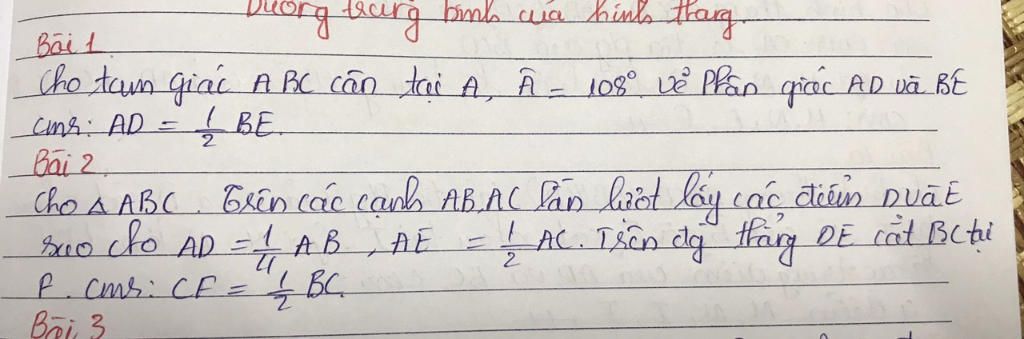 Đường trung bình của hình thang.
Bài 1
Cho tam giác ABC cân tại A, Â = 108°. Vẽ Phân giác AD và BE
cmr: AD = 1/2 BE.
Bài 2
Cho Δ ABC. Trên các cạnh AB, AC lần lượt lấy các điểm D và E
sao cho AD = 1/4 AB, AE = 1/2 AC. Trên đg thẳng DE cắt BC tại
F. cmr: CF = 1/2 BC.
Bài 3